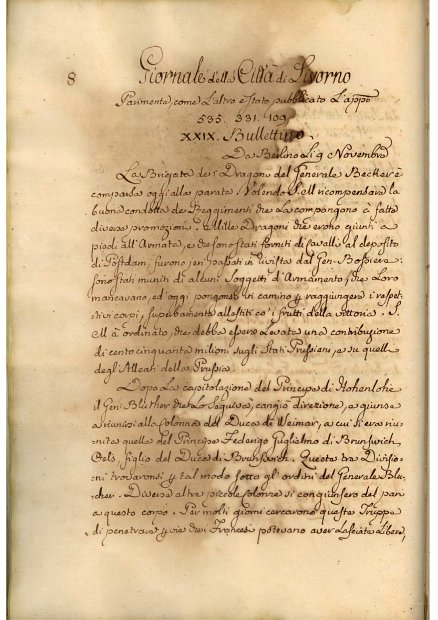 8
Giornale della Città di Livorno
Parimente, come l'altro è stato pubblicato l'app.o
535. 331. 109
XXIX. Bullettino
Da Berlino Li 9 Novembre
La Brigata dei Dragoni del Generale Becker è
comparsa oggi alla parata. Volendo S. M. ricompensare la
buona condotta dei Reggimenti che La compongono à fatto
diverse promozioni. Mille Dragoni che erono giunti a
piedi all'Armata, e che sono stati forniti di cavalli al deposito
di Postdam, furono jeri passati in rivista dal Gen. Bessiere.
sono stati muniti di alcuni Soggetti d'Armamento, che Loro
mancavano, ed oggi pongonsi in camino per raggiungere i respet-
tivi corpi, superbamente allestiti co' i frutti della vittoria. S.
M. à ordinato, che debba essere Levata una contribuzione
di cento cinquanta milioni sugli Stati Prussieni, e su quelli
degli Alleati della Prussia.
Dopo La capitolazione del Principe di Hohenlohe
il Gen. Blücher che Lo Seguiva, cangiò direzione, e giunse
a riunirsi alla colonna del Duca di Weimar, a cui si era riu-
nita quella del Principe Federigo Guglielmo di Brunswich
Oels, figlio del Duca di Brunswich. Queste tre Divisio-
ni trovaronsi per tal modo sotto gl'ordini del Generale Blu-
cher. Diverse altre piccole colonne si congiunsero del pari
a questo corpo. Per molti giorni cercarono queste Truppe
di penetrare per vie che i Francesi potevano aver Lasciate Libere,